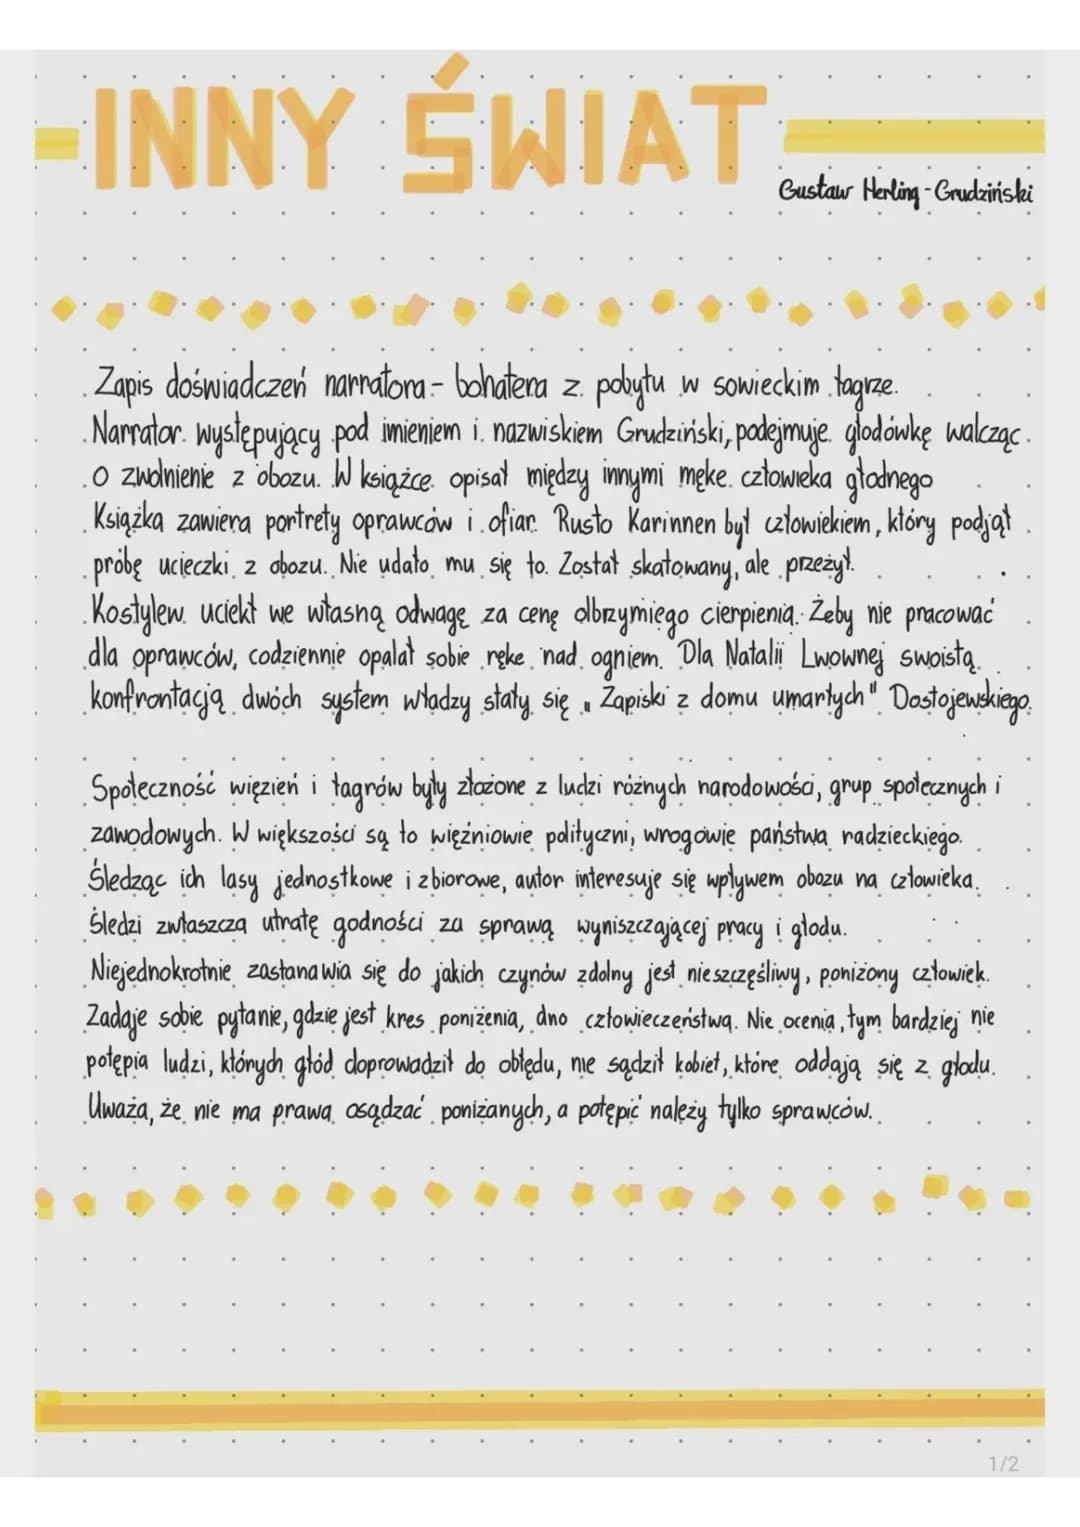 INNY ŚWIAT
Gustaw Herling-Grudziński
Zapis doświadczeń narratora- bohatera z pobytu w sowieckim łagrze.
Narrator występujący pod imieniem i nazwiskiem Grudziński, podejmuje głodówkę walcząc
o zwolnienie z obozu. W książce opisał między innymi męke człowieka głodnego
Książka zawiera portrety oprawców i ofiar. Rusto Karinnen był człowiekiem, który podjął
próbę ucieczki z obozu. Nie udało mu się to. Został skatowany, ale przeżył.
Kostylew uciekł we własną odwagę za cenę olbrzymiego cierpienia. Żeby nie pracować
dla oprawców, codziennie opalał sobie ręke nad ogniem. Dla Natalii Lwownej swoistą
konfrontacją dwóch system władzy stały się „Zapiski z domu umarłych" Dostojewskiego.
Społeczność więzień i łagrów były złożone z ludzi różnych narodowości, grup społecznych i
zawodowych. W większości są to więźniowie polityczni, wrogowie państwa radzieckiego.
Śledząc ich lasy jednostkowe i zbiorowe, autor interesuje się wpływem obozu na człowieka.
Śledzi zwłaszcza utratę godności za sprawą wyniszczającej pracy i głodu.
Niejednokrotnie zastanawia się do jakich czynów zdolny jest nieszczęśliwy, poniżony człowiek.
Zadaje sobie pytanie, gdzie jest kres poniżenia, dno człowieczeństwa. Nie ocenia, tym bardziej nie
potępia ludzi, których głód doprowadził do obłędu, nie sądził kobiet, które oddają się z głodu.
Uważa, że nie ma prawa osądzać poniżanych, a potępić należy tylko sprawców.
1/2